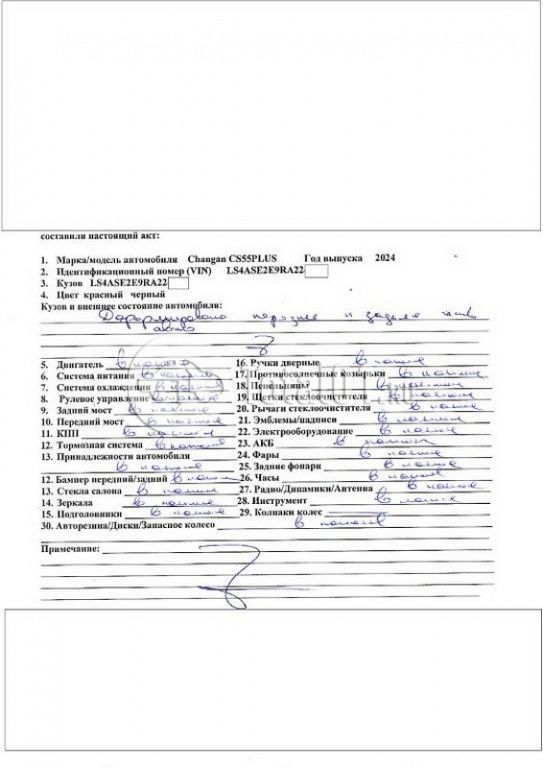 составили настоящий акт:
1. Марка/модель автомобиля Changan CS55PLUS Год выпуска 2024
2. Идентификационный номер (VIN) LS4ASE2E9RA22
3. Кузов LS4ASE2E9RA22
4. Цвет красный черный
Кузов и внешнее состояние автомобиля:
5. Двигатель в наличии
6. Система питания в наличии
7. Система охлаждения в наличии
8. Рулевое управление в наличии
9. Задний мост в наличии
10. Передний мост в наличии
11. КПП в наличии
12. Тормозная система в наличии
13. Принадлежности автомобиля
в наличии
12. Бампер передний/задний в наличии
13. Стекла салона в наличии
14. Зеркала в наличии
15. Подголовники в наличии
16. Ручки дверные в наличии
17. Противосолнечные козырьки в наличии
18. Пепельницы в наличии
19. Щетки стеклоочистителя в наличии
20. Рычаги стеклоочистителя в наличии
21. Эмблемы/надписи в наличии
22. Электрооборудование в наличии
23. АКБ в наличии
24. Фары в наличии
25. Задние фонари в наличии
26. Часы в наличии
27. Радио/Динамики/Антенна в наличии
28. Инструмент в наличии
29. Колпаки колес
30. Авторезина/Диски/Запасное колесо в наличии
Примечание: